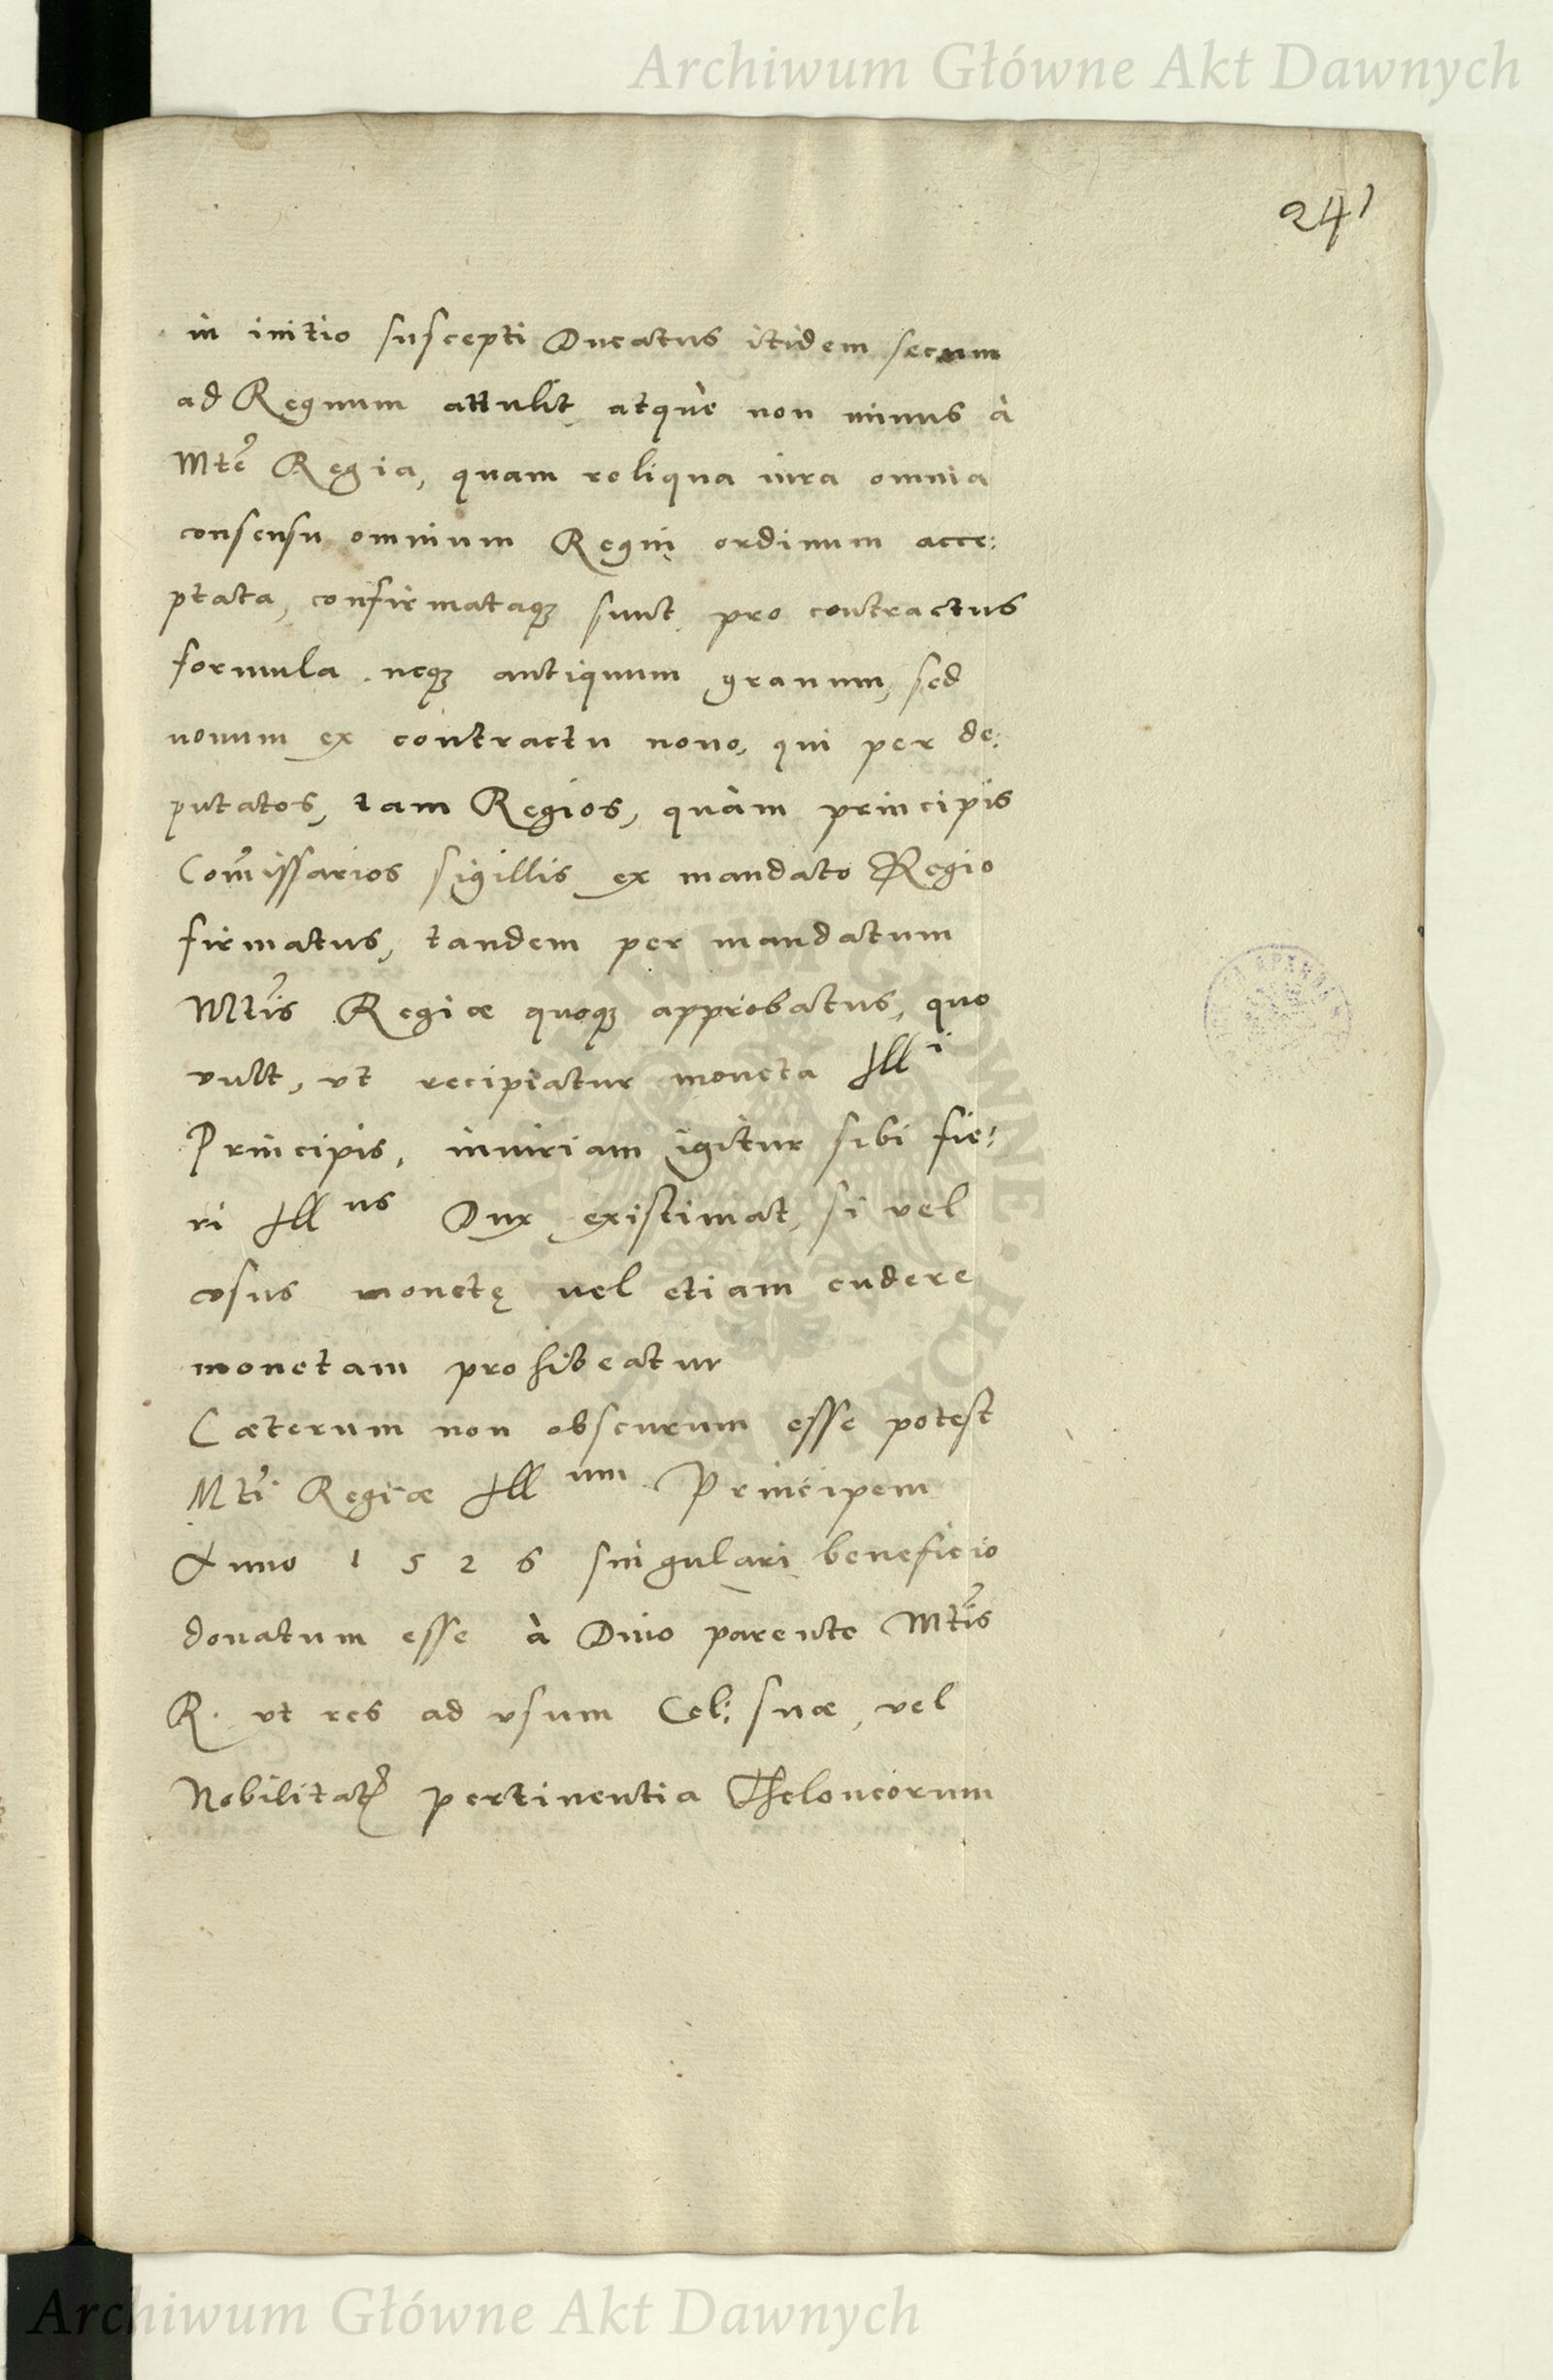 Archiwum Główne Akt Dawnych
241
in initio suscepti Ducatus itidem secum
ad Regnum attulit, atque non minus à
Mte Regia, quam reliqua iura omnia
consensu omnium Regni ordinum acce:
ptata, confirmataqꝫ sunt, pro contractus
formula. neqꝫ antiquum granum, sed
nouum ex contractu nouo, qui per de:
putatos, tam Regios, quàm principis
Com̃issarios sigillis ex mandato Regio
firmatus, tandem per mandatum
Mtis Regiæ quoqꝫ approbatus, quo
vult, vt recipiatur moneta Illi
Principis, iniuriam igitur sibi fie:
ri Illus Dux existimat, si vel
cusus monetę vel etiam cudere
monetam prohibeatur
Cæterum non obscurum esse potest
Mti Regiæ Illum Principem
Anno 1526 singulari beneficio
donatum esse à Diuo parente Mtis
R. vt res ad vsum Cel: suæ, vel
Nobilitatis pertinentia Theloneorum
Archiwum Główne Akt Dawnych